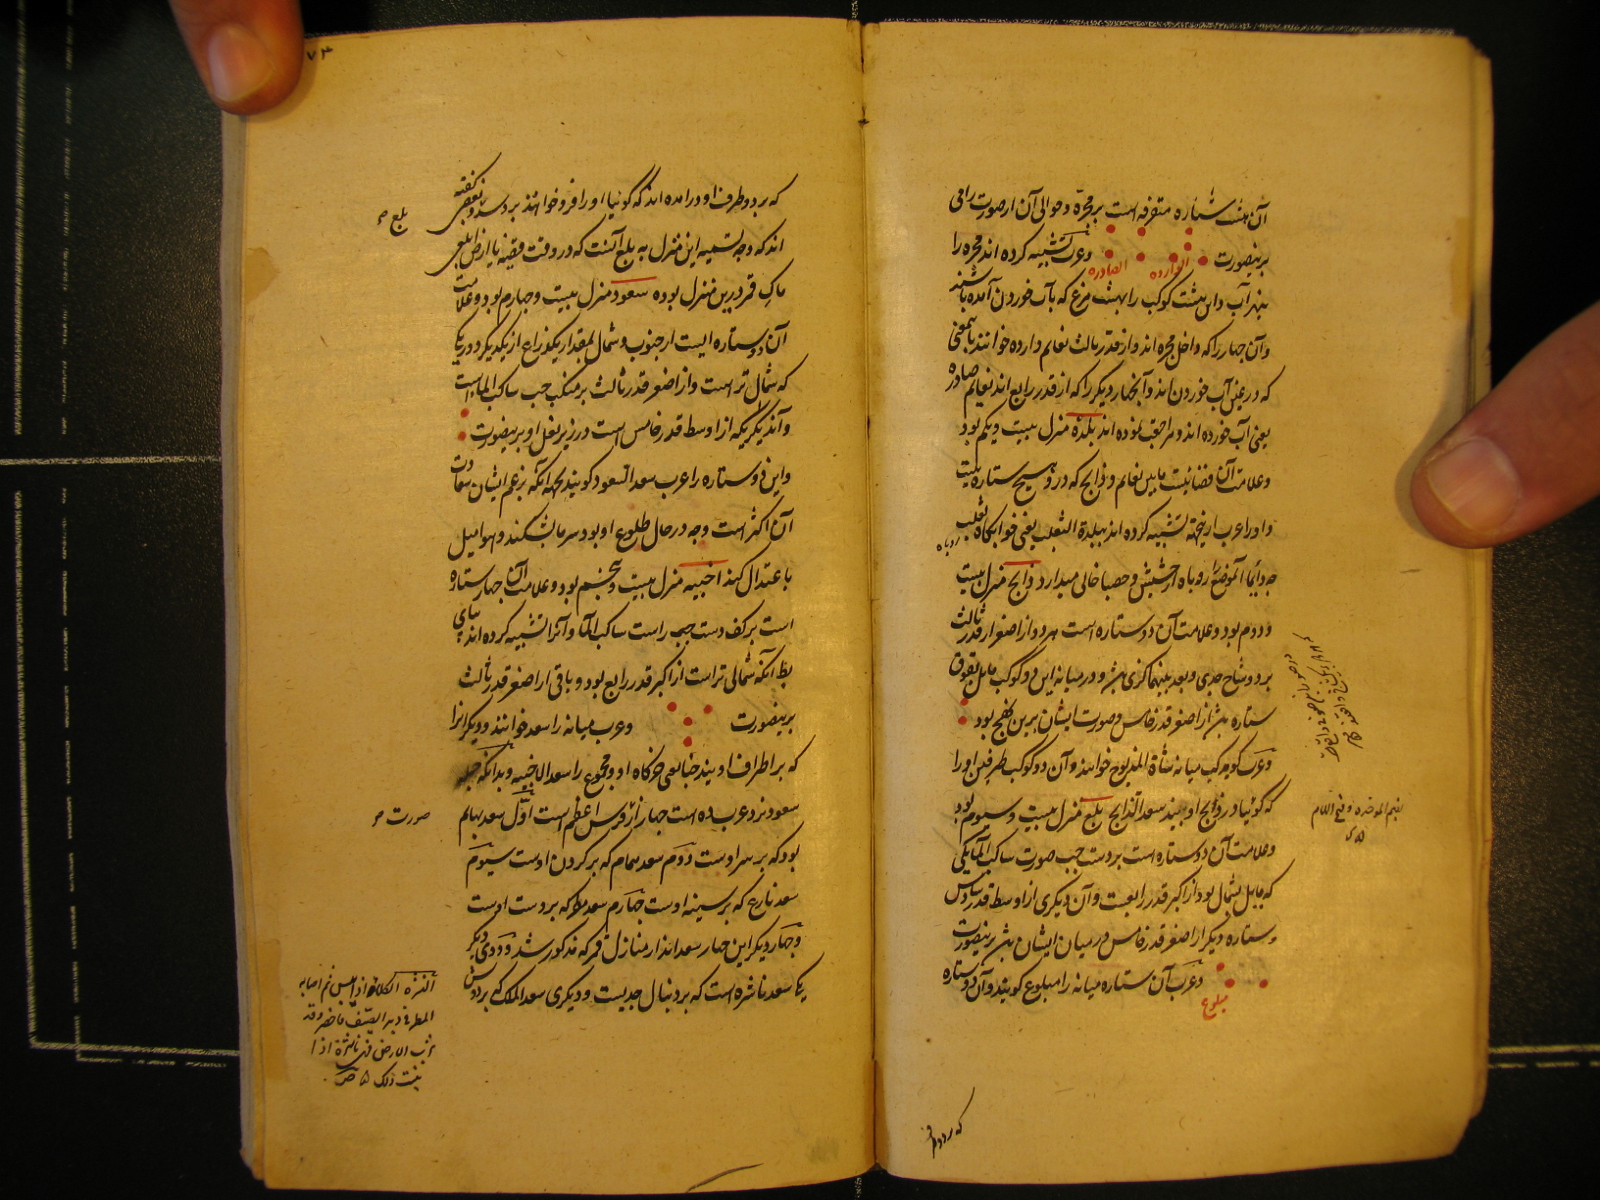 آن هشت ستاره متفرقه است بر مجره و حوالی آن از صورت رامی
برینصورت
الوارده
الصادره
و عرب تشبیه کرده اند مجره را
بنهر آب و این هشت کوکب را بهشت مرغ که بآب خوردن آمده باشند
و آن چهار را که داخل مجره اند و از قدر ثالث نعایم وارده خوانند بمعنی
که در عین آب خوردن اند و آنچهار دیگر را که از قدر رابع اند نعایم صادره
یعنی آب خورده اند و مراجعت نموده اند بلده منزل بیست و یکم بود
و علامت آن فضائیست مابین نعایم و ذابح که در و هیچ ستاره نیست
و او را عرب ازینجهة تشبیه کرده اند ببلدة الثعلب یعنی خوابگاه ثعلب
روباه
چه دایما آنموضع را روباه از حشیش و حصبا خالی میدارد ذابح منزل بیست
و دوم بود و علامت آن دو ستاره است هر دو از اصغر از قدر ثالث
بر دو شاخ جدی و بعد بینهما گزی بیش و در میانه این دو کوکب مایل بفوق
ستاره هست از اصغر قدر خامس و صورت ایشان برین نهج بود
و عرب کوکب میانه شاة المذبوح خوانند و آن دو کوکب طرفین او را
که گوئیا در ذابح او بیند سعد الذابح بلع منزل بیست و سیوم بود
و علامت آن دو ستاره است بر دست چپ صورت ساکب المآ یکی
که مایل بشمال بود از اکبر قدر رابعست و آن دیگری از اوسط قدر سادس
و ستاره دیگر از اصغر قدر خامس در میان ایشان هست برینصورت
و عرب آن ستاره میانه را مبلوع گویند و آن دو ستاره
مبلوع
بضم الموحده و فتح اللام
که بر دو طرف
۷۴
که بر دو طرف او در آمده اند که گوئیا او را فرو خواهند برد و بعضی گفته
اند که وجه تسمیه این منزل به بلع آنست که در وقت قضیه یا ارض ابلعی
بلع
ماءک قمر درین منزل بوده سعود منزل بیست و چهارم بود و علامت
آن دو ستاره ایست از جنوب و شمال بمقدار یکذراع از یکدیگر دور یکی
که شمالی تر است و از اصغر قدر ثالث بر منکب چپ ساکب الماء است
و آندیگر که از اوسط قدر خامس است در زیر بغل او برینصورت
و این دو ستاره را عرب سعد السعود گویند بجهة آنکه بزعم ایشان سعادت
آن اکثر است و چه در حال طلوع او بود سرما بشکند و هوا میل
باعتدال کند اخبیه منزل بیست و پنجم بود و علامت آن چهار ستاره
است بر کف دست چپ راست ساکب المآ و آنرا تشبیه کرده اند بپای
بط آنکه شمالی تر است از اکبر قدر رابع بود و باقی از اصغر قدر ثالث
برینصورت
و عرب میانه را سعد خوانند و دیگر آنرا
که بر اطراف او بیند خبا یعنی خرگاه او و مجموع را سعد الاخبیه و بدانکه جمله
سعود نزد عرب ده است چهار از فرس اعظم است اول سعد بهایم
صورت
بود که بر سر اوست دوم سعد همام که بر گردن اوست سیوم
سعد بارع که بر سینه اوست چهارم سعد مطر که بر دست اوست
و چهار دیگر این چهار سعد اند از منازل قمر که مذکور شد و دوی دیگر
یکی سعد ناشره است که بر دنبال جدیست و دیگری سعد الملک که بر دوش
النشره الکلاء اذا یبس ثم اصابه
المطر فی دبر الصیف فاخضر و قد
نشرت الارض فهی ناشرة اذا
نبتت ذلک ص